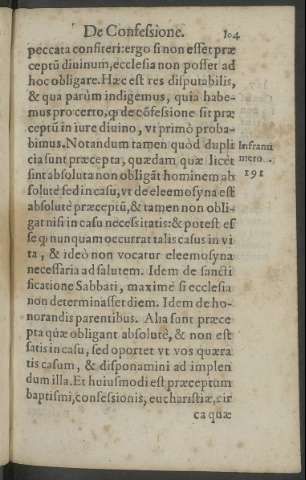 De Confessione. 104
peccata confiteri: ergo si non esset præ
ceptũ diuinum, ecclesia non posset ad
hoc obligare. Hæc est res disputabilis,
& qua parùm indigemus, quia habe-
mus pro certo, q̃ de cõfessione sit præ
ceptũ in iure diuino, vt primò proba-
bimus. Notandum tamen quòd dupli
cia sunt præcepta, quædam quæ licèt
sint absoluta non obligãt hominem ab
solutè sed in casu, vt de eleemosyna est
absolutè præceptũ, & tamen non obli-
gat nisi in casu necessitatis: & potest es
se q̃ nunquam occurrat talis casus in vi
ta, & ideò non vocatur eleemosyna
necessaria ad salutem. Idem de sancti
ficatione Sabbati, maximè si ecclesia
non determinasset diem. Idem de ho-
norandis parentibus. Alia sunt præce
pta quæ obligant absolutè, & non est
satis in casu, sed oportet vt vos quæra
tis casum, & disponamini ad implen
dum illa. Et huiusmodi est præceptum
baptismi, confessionis, eucharistiæ, cir
ca quæ
Infranu
mero.
191